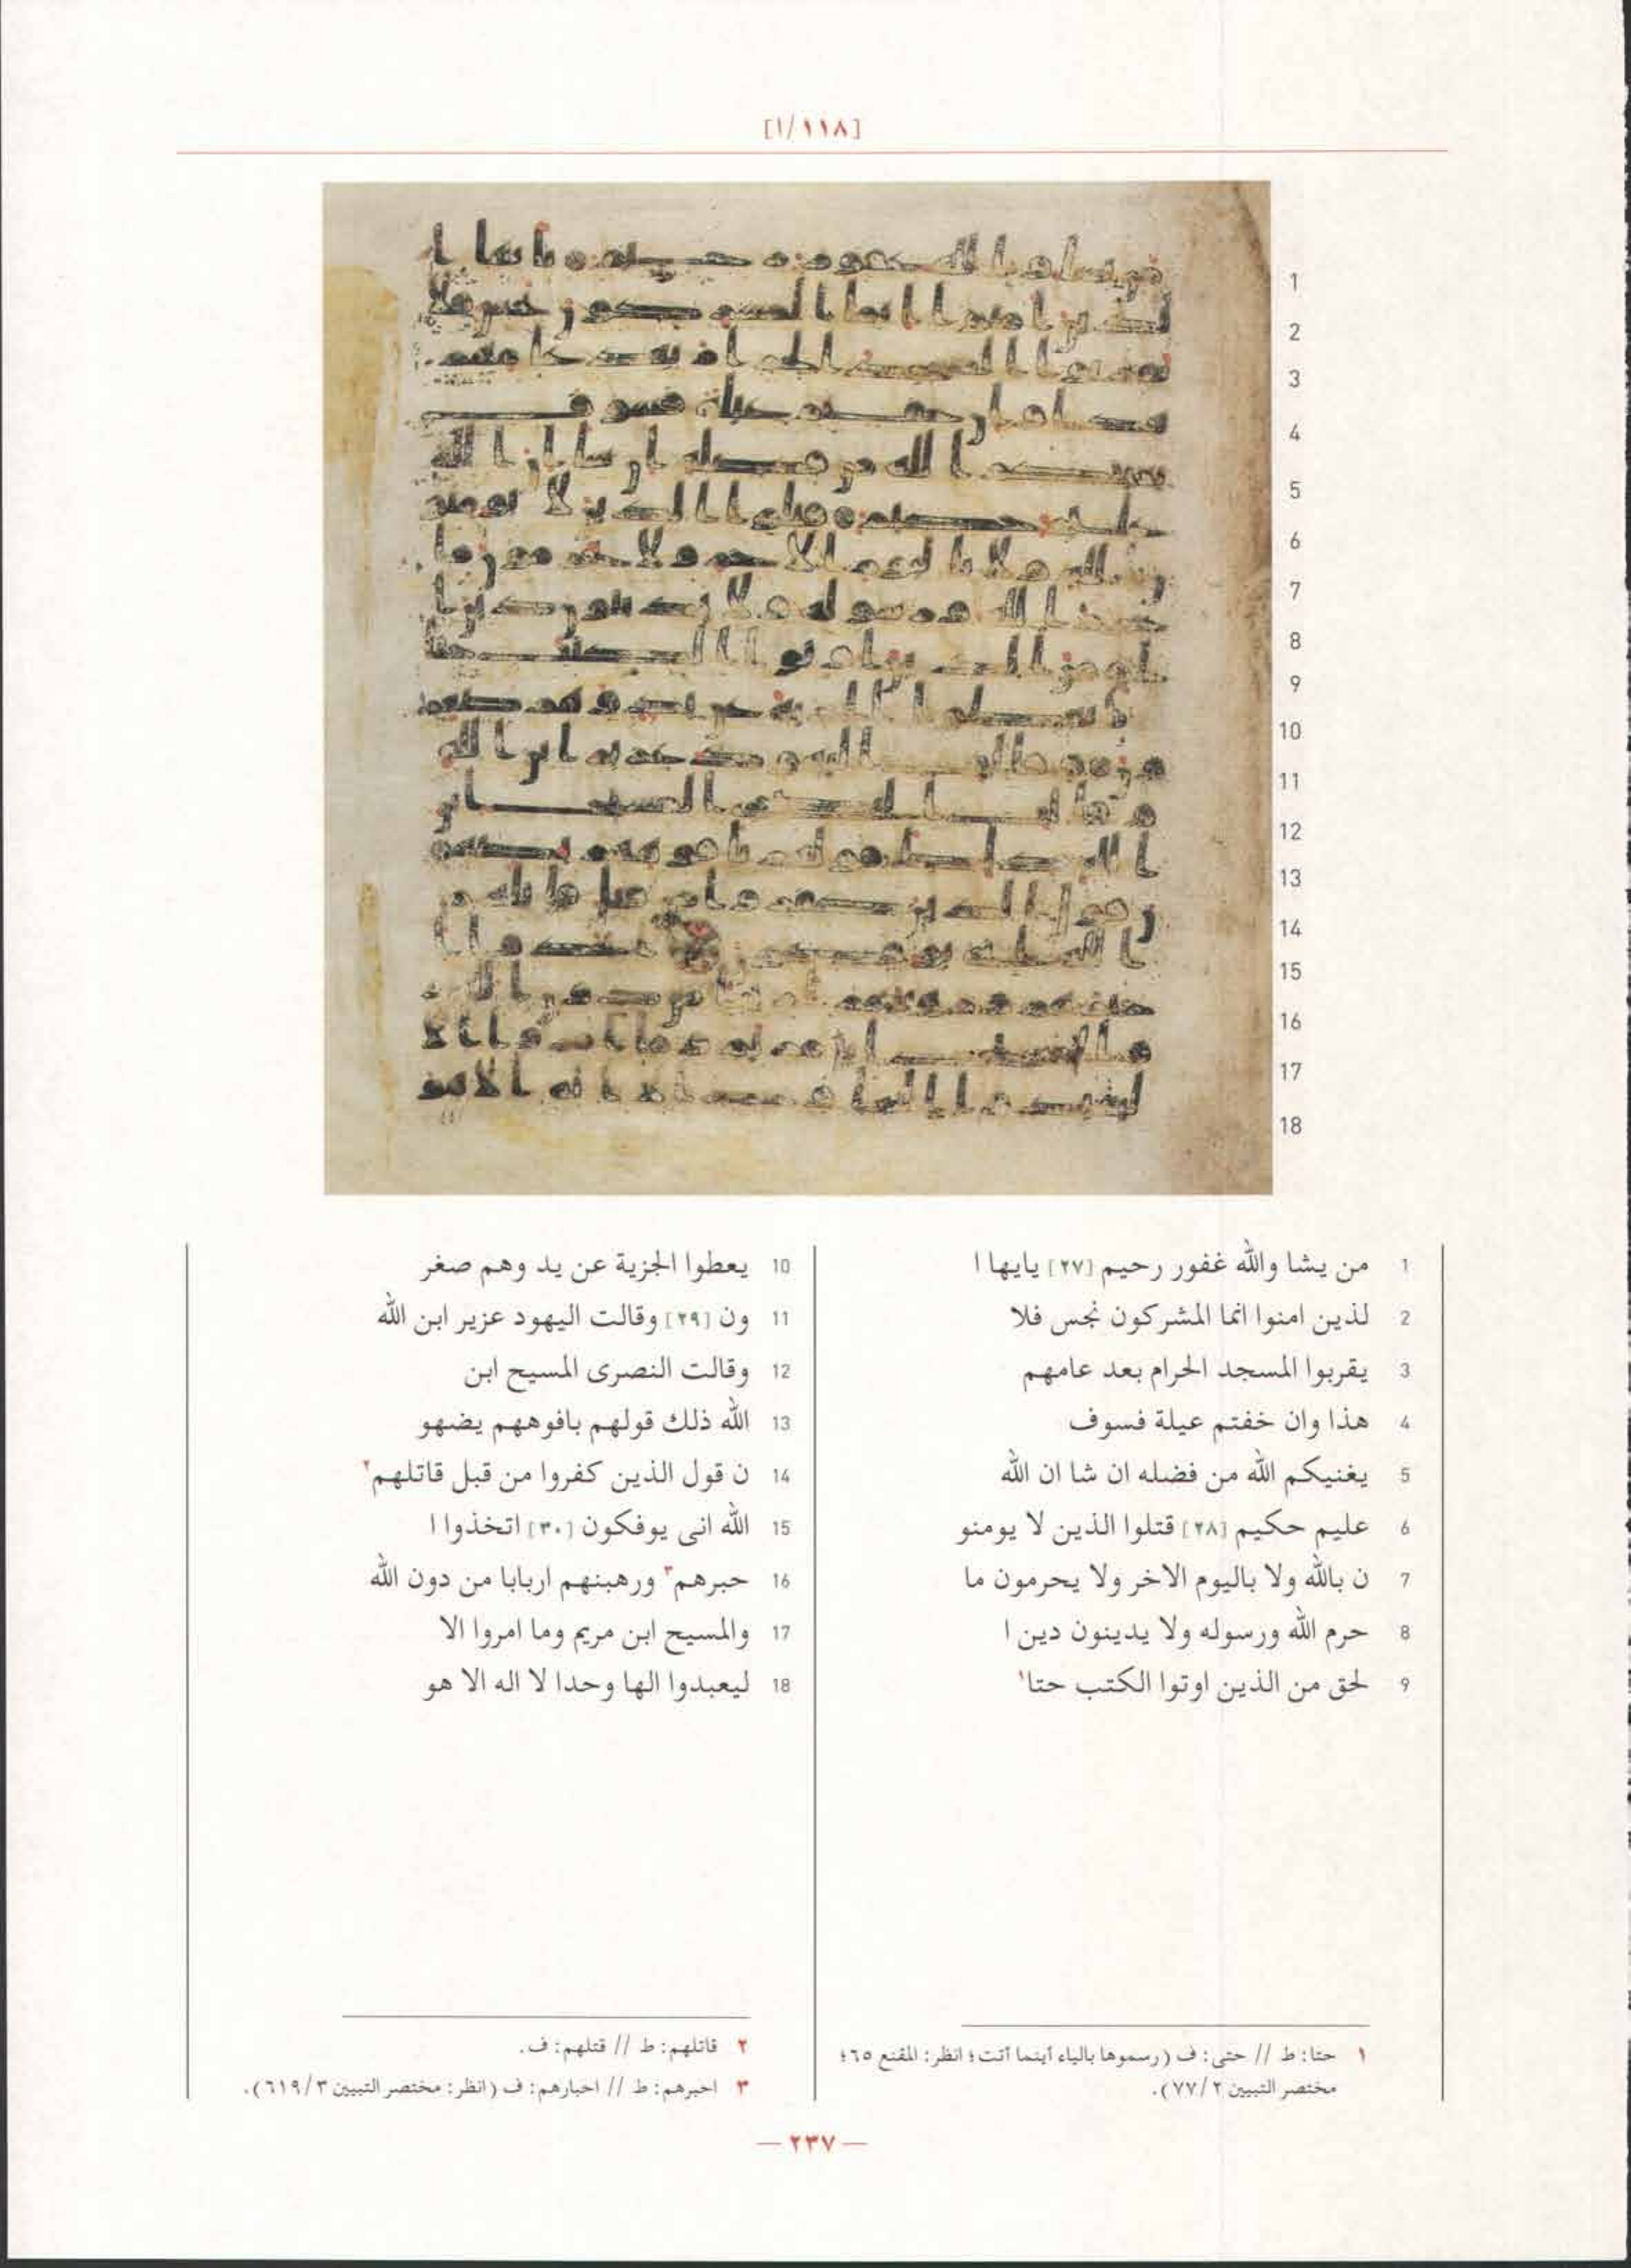 [١١٨/١]
1 من يشا والله غفور رحيم [٢٧] يايها ا
2 لذين امنوا انما المشركون نجس فلا
3 يقربوا المسجد الحرام بعد عامهم
4 هذا وان خفتم عيلة فسوف
5 يغنيكم الله من فضله ان شا ان الله
6 عليم حكيم [٢٨] قتلوا الذين لا يومنو
7 ن بالله ولا باليوم الاخر ولا يحرمون ما
8 حرم الله ورسوله ولا يدينون دين ا
9 لحق من الذين اوتوا الكتب حتا١
10 يعطوا الجزية عن يد وهم صغر
11 ون [٢٩] وقالت اليهود عزير ابن الله
12 وقالت النصرى المسيح ابن
13 الله ذلك قولهم بافوههم يضهو
14 ن قول الذين كفروا من قبل قاتلهم٢
15 الله انى يوفكون [٣٠] اتخذوا ا
16 حبرهم٣ ورهبنهم اربابا من دون الله
17 والمسيح ابن مريم وما امروا الا
18 ليعبدوا الها وحدا لا اله الا هو
١ حتا: ط // حتى: ف (رسموها بالياء أينما أتت؛ انظر: المقنع ٦٥؛
مختصر التبيين ٧٧/٢).
٢ قاتلهم: ط // قتلهم: ف.
٣ احبرهم: ط // احبارهم: ف (انظر: مختصر التبيين ٦١٩/٣).
— ٢٣٧ —